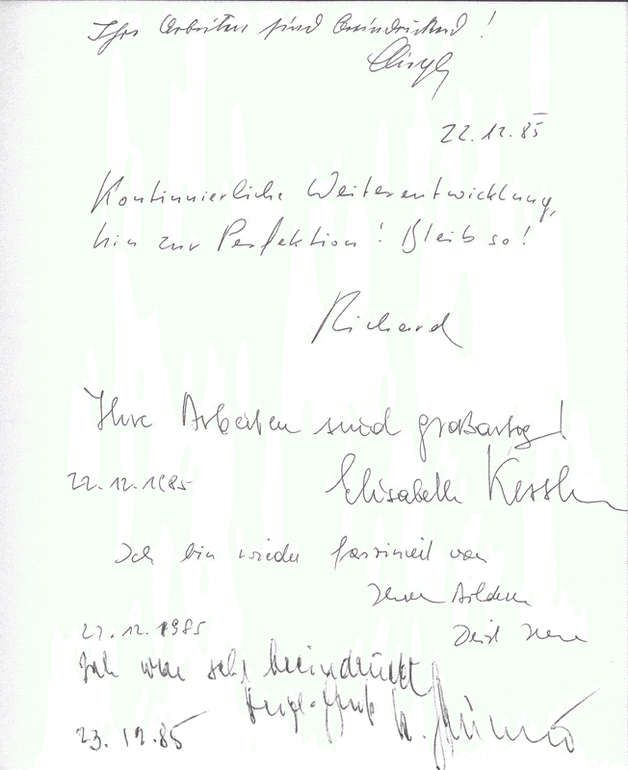 Ihre Arbeiten sind beeindruckend!
22.12.85
Kontinuierliche Weiterentwicklung,
hin zur Perfektion! Bleib so!
Richard
Ihre Arbeiten sind großartig!
22.12.1985 Elisabeth Kessler
Ich bin wieder fasziniert von
Ihren Bildern
22.12.1985
Ich war sehr beeindruckt
23.12.85